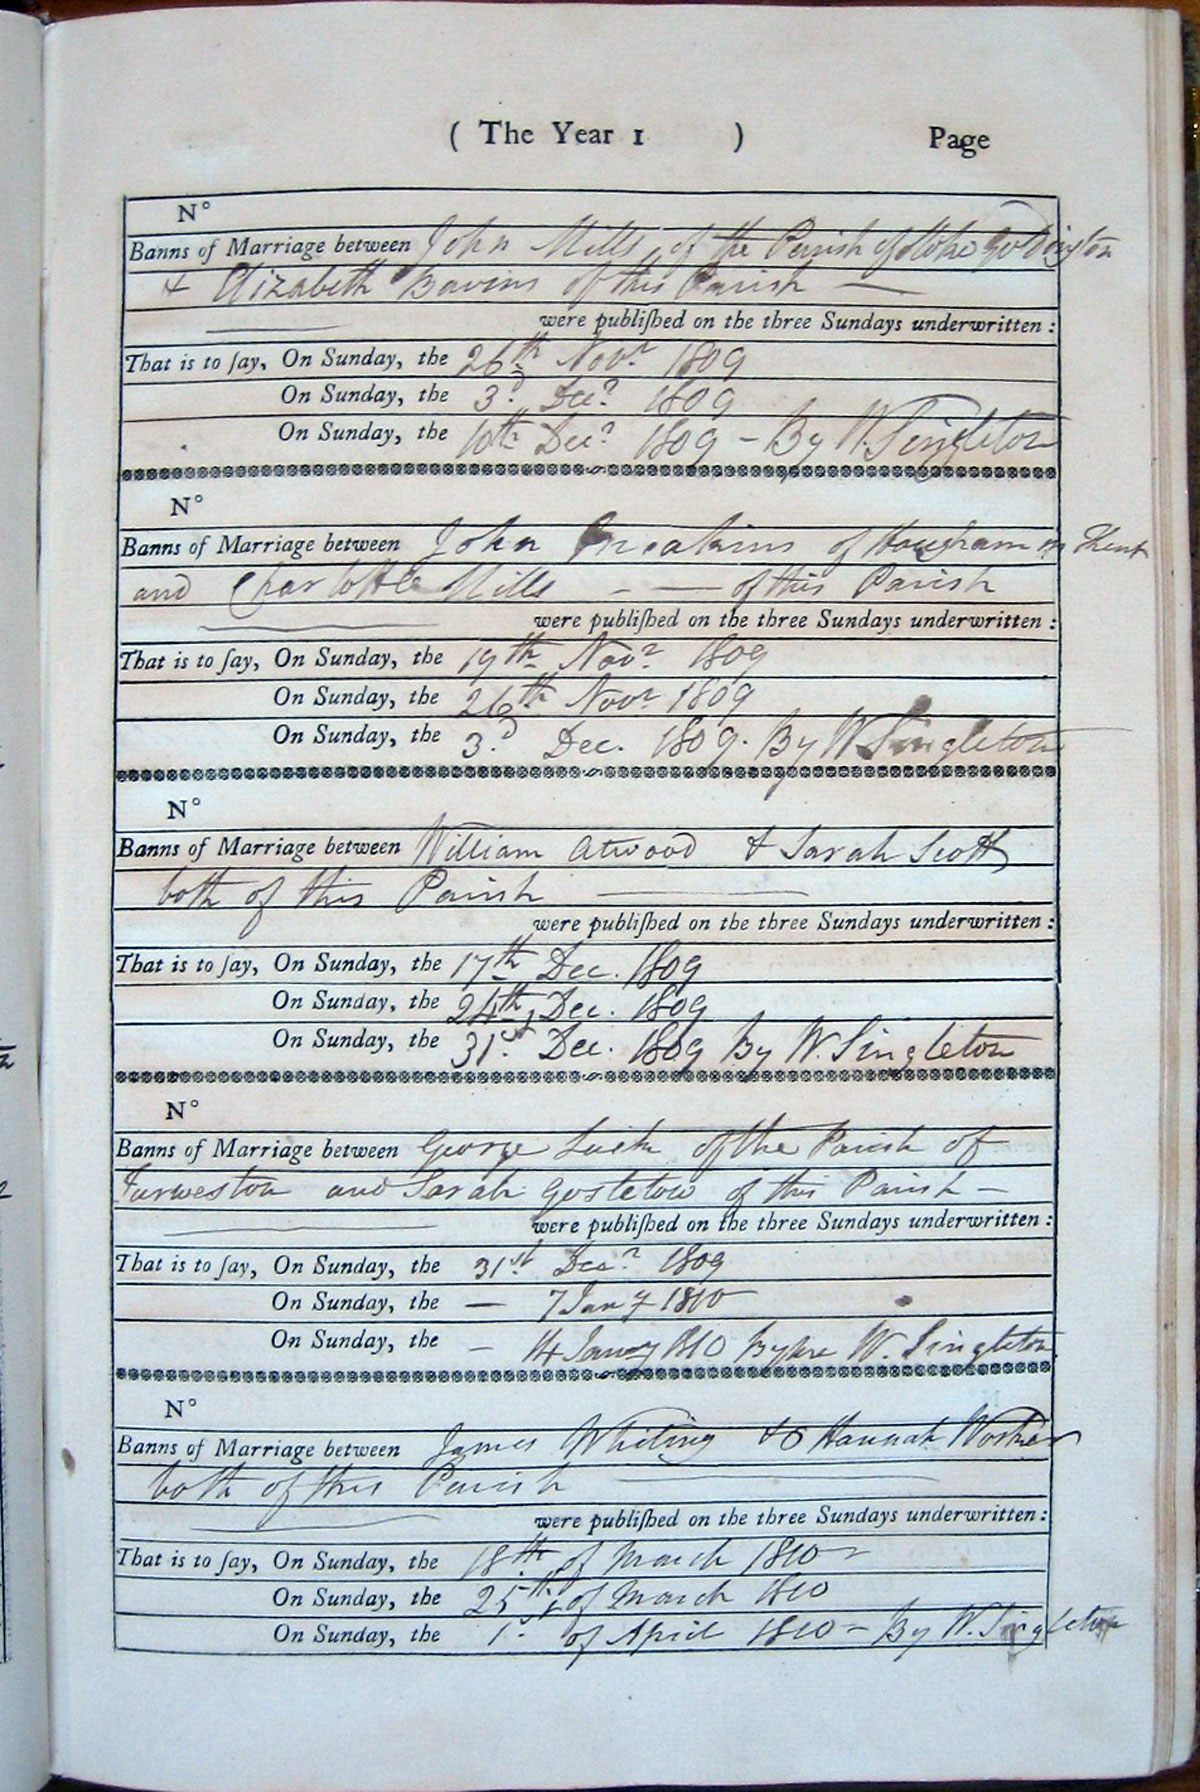 ( The Year 1 ) Page
N°
Banns of Marriage between John Mills of the Parish of Stoke Goldington
+ Elizabeth Bavins of this Parish —
were publiſhed on the three Sundays underwritten :
That is to ſay, On Sunday, the 26th Novr 1809
On Sunday, the 3d Decr 1809
On Sunday, the 10th Decr 1809 – By W. Singleton
N°
Banns of Marriage between John of Hougham in Kent
and Charlotte Mills – — of this Parish
were publiſhed on the three Sundays underwritten :
That is to ſay, On Sunday, the 19th Novr 1809
On Sunday, the 26th Novr 1809
On Sunday, the 3d Dec. 1809. By W Singleton
N°
Banns of Marriage between William Atwood & Sarah Scott
both of this Parish —
were publiſhed on the three Sundays underwritten :
That is to ſay, On Sunday, the 17th Dec. 1809
On Sunday, the 24th Dec. 1809
On Sunday, the 31st Dec. 1809 By W. Singleton
N°
Banns of Marriage between George of the Parish of
Turweston and Sarah Gostelow of this Parish –
were publiſhed on the three Sundays underwritten :
That is to ſay, On Sunday, the 31st Decr 1809
On Sunday, the — 7 Jany 1810
On Sunday, the – 14 Jany 1810 By me W. Singleton
N°
Banns of Marriage between James Whiting & Hannah Worker
both of this Parish —
were publiſhed on the three Sundays underwritten :
That is to ſay, On Sunday, the 18th of March 1810 –
On Sunday, the 25th of March 1810
On Sunday, the 1st of April 1810 – By W. Singleton